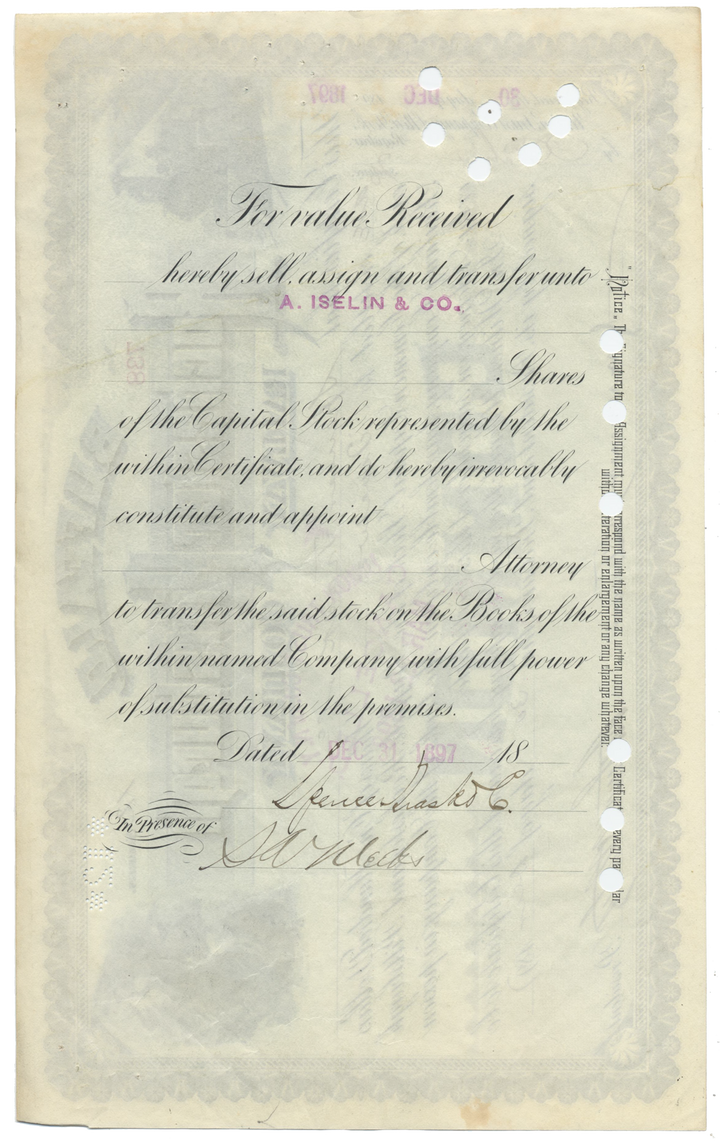 For value Received
hereby sell, assign and transfer unto
A. ISELIN & CO.
Shares
of the Capital Stock represented by the
within Certificate, and do hereby irrevocably
constitute and appoint
Attorney
to transfer the said stock on the Books of the
within named Company with full power
of substitution in the premises.
Dated DEC 31 1897 18
Spencer Trask & Co.
In Presence of
S A Meeks
Notice. The Signature to Assignment must correspond with the name as written upon the face Certificate every particular
without alteration or enlargement or any change whatever.
30 DEC 1897